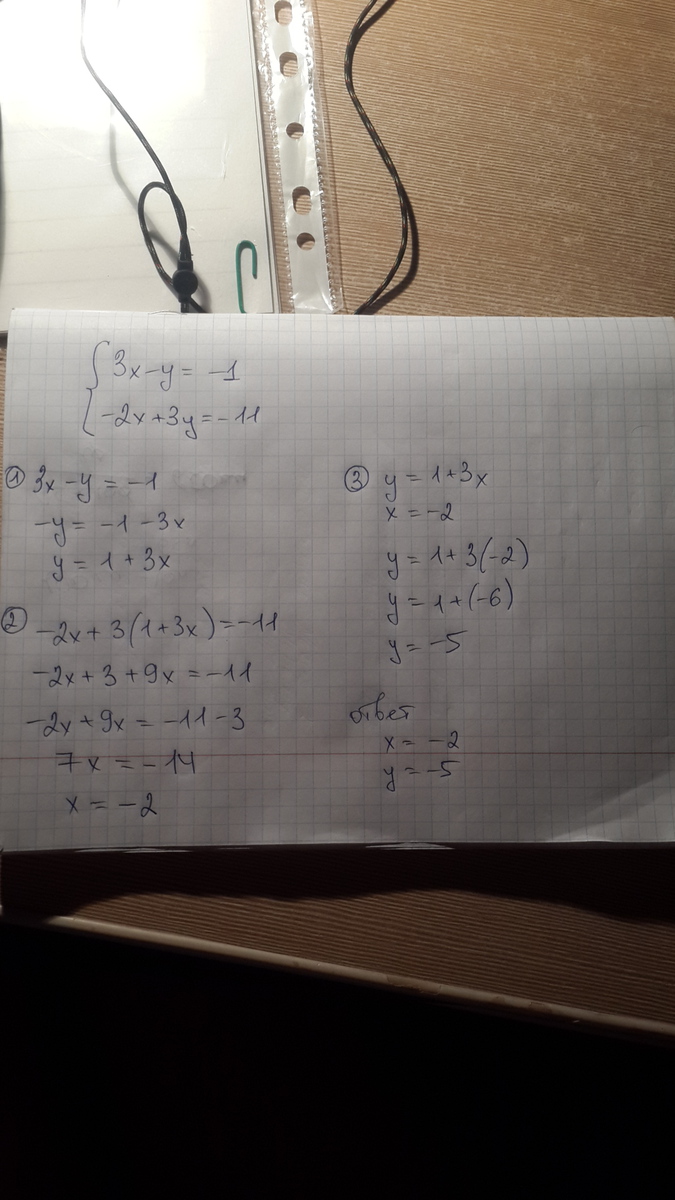 {3x-y = -1
-2x+3y=-11
① 3x-y = -1
-y = -1-3x
y = 1+3x
② -2x+3(1+3x)=-11
-2x+3+9x=-11
-2x+9x=-11-3
7x=-14
x=-2
③ y=1+3x
x=-2
y=1+3(-2)
y=1+(-6)
y=-5
ответ
x=-2
y=-5